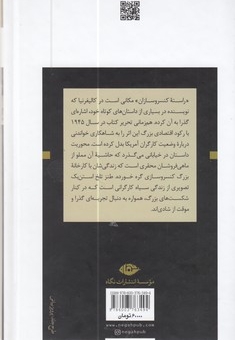 «راستهٔ کنسروسازان» مکانی است در کالیفرنیا که
نویسنده در بسیاری از داستان‌های کوتاه خود، اشاره‌ای
گذرا به آن کرده. همزمانی تحریر کتاب در سال ۱۹۴۵
با رکود اقتصادی بزرگ این اثر را به شاهکاری خواندنی
دربارهٔ وضعیت کارگران آمریکا بدل کرده است. محوریت
داستان در خیابانی می‌گذرد که حاشیهٔ آن مملو از
ماهی‌فروشان محلی‌ای است که زندگی‌شان با کارخانهٔ
بزرگ کنسروسازی گره خورده. طنز تلخ استن‌بک
تصویری از زندگی سیاه کارگرانی است که در کنار
شکست‌های بزرگ، همواره به دنبال تجربه‌ای گذرا و
موقت از شادی‌اند.
مؤسسهٔ انتشارات نگاه
۶۰۰۰۰ تومان
www.negahpub.com
negahpub